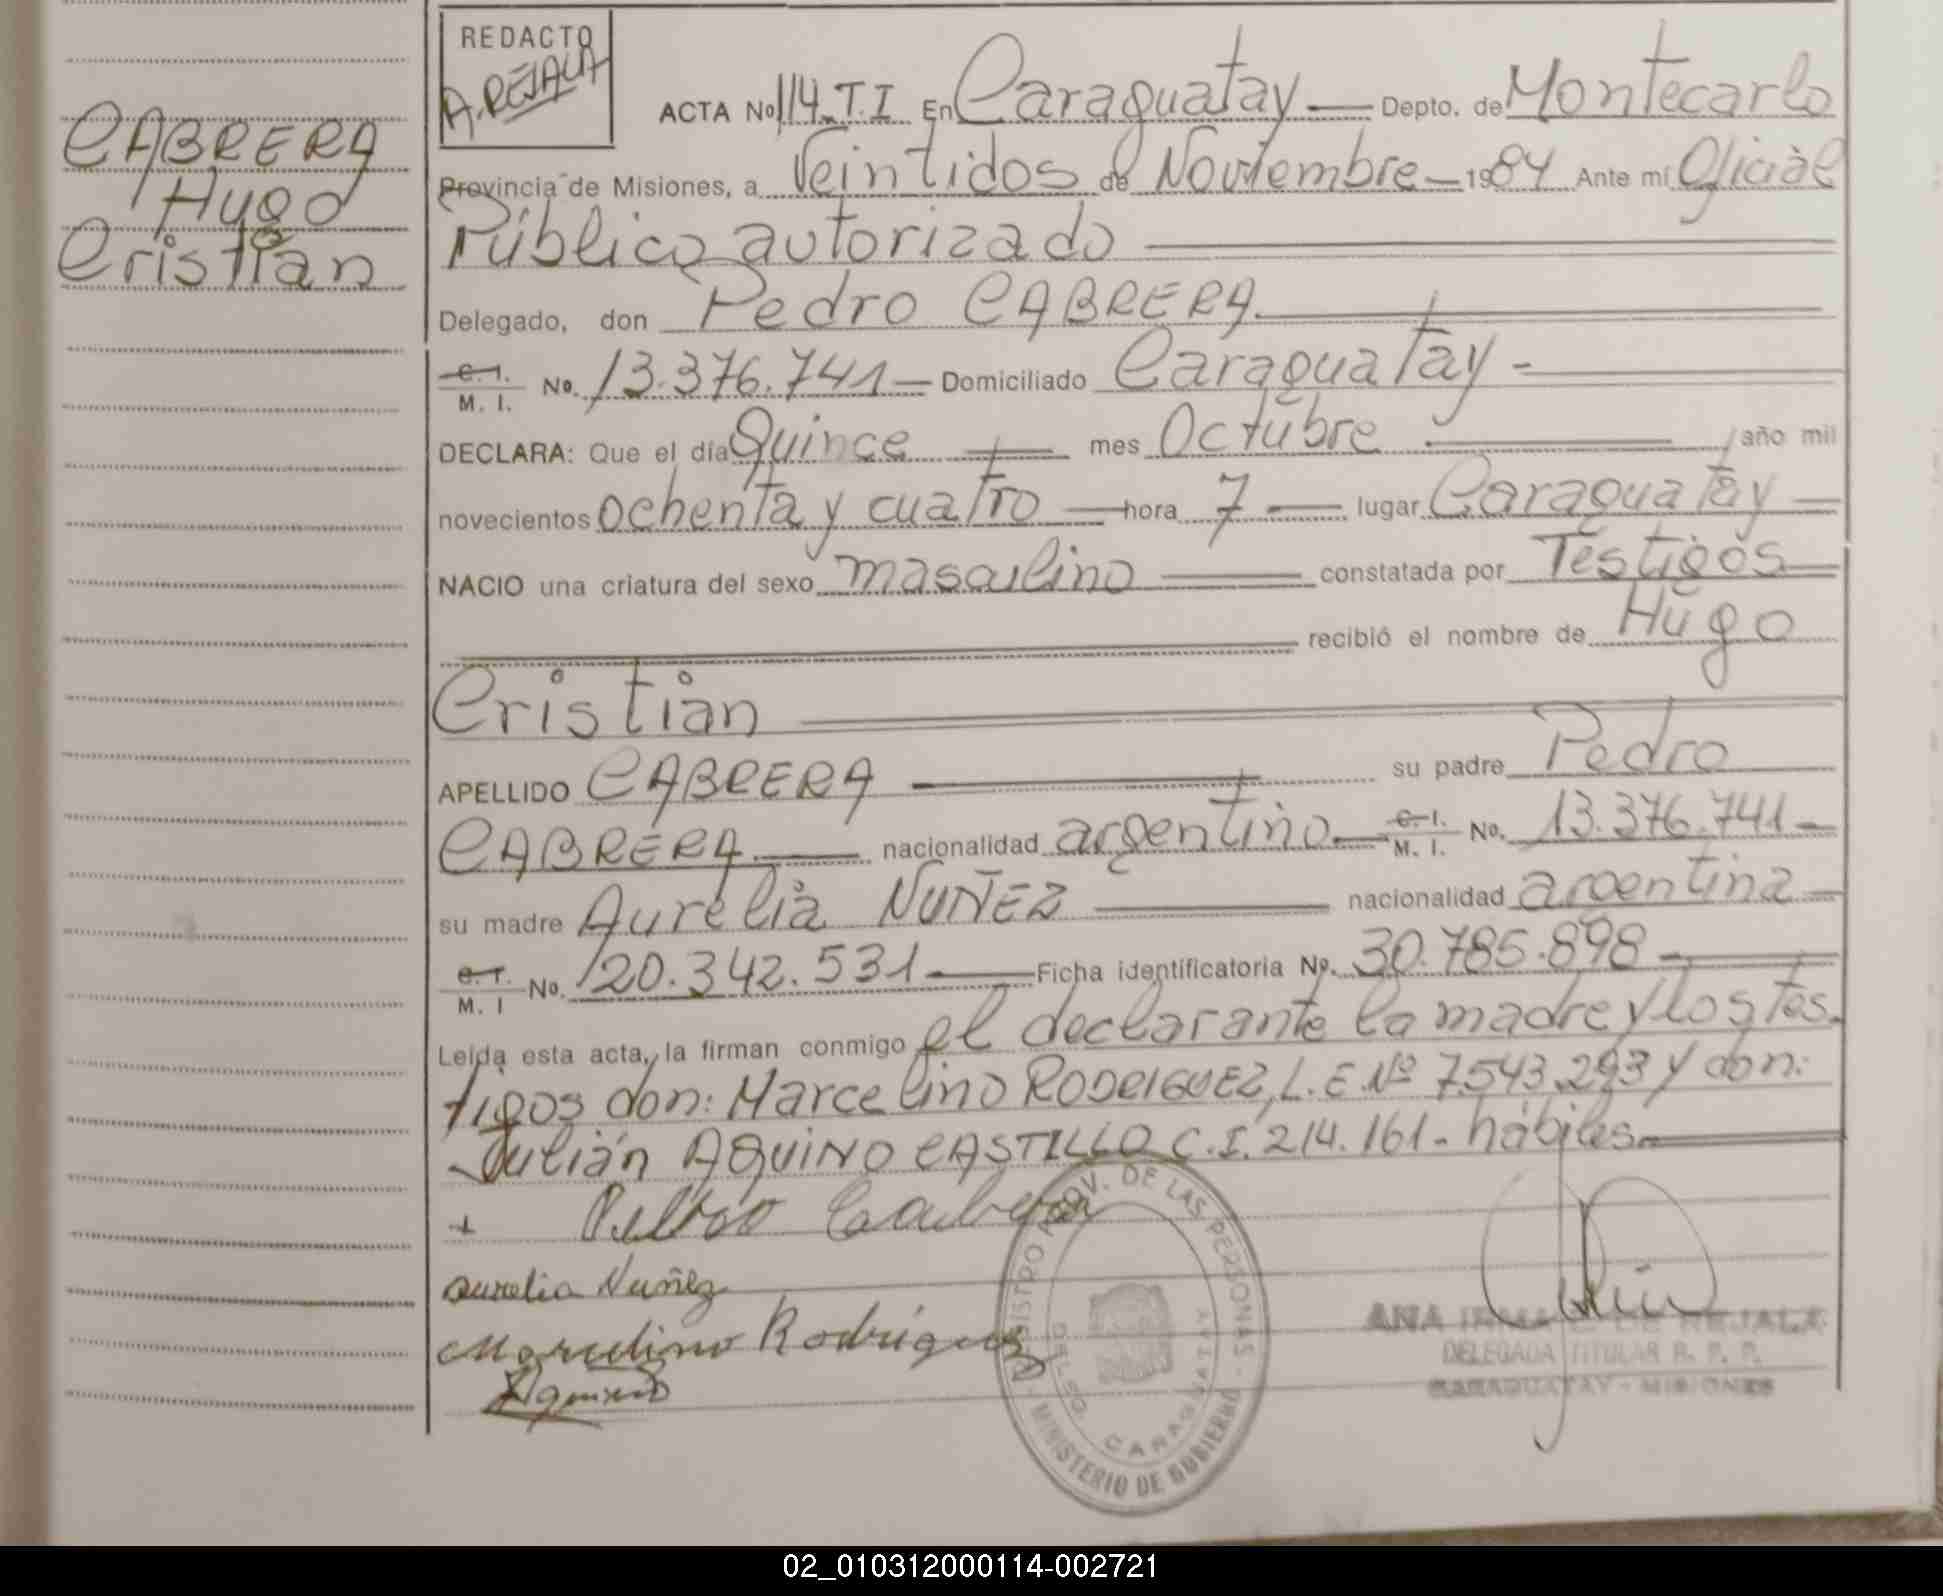 CABRERA
Hugo
Cristian
REDACTO
A.REJALA
ACTA No 114.T.I En Caraguatay Depto. de Montecarlo
Provincia de Misiones, a Veintidos de Noviembre 1984 Ante mí Oficial
Público autorizado
Delegado, don Pedro CABRERA.
C. I. M. I. No. 13.376.741 Domiciliado Caraguatay
DECLARA: Que el día Quince mes Octubre año mil
novecientos ochenta y cuatro hora 7 lugar Caraguatay
NACIO una criatura del sexo masculino constatada por Testigos
recibió el nombre de Hugo
Cristian
APELLIDO CABRERA su padre Pedro
CABRERA nacionalidad argentino C. I. M. I. No. 13.376.741
su madre Aurelia NUÑEZ nacionalidad argentina
C. I. M. I No. 20.342.531 Ficha identificatoria No. 30.785.898
Leida esta acta, la firman conmigo el declarante la madre y los tes.
tigos don: Marcelino RODRIGUEZ, L.E.Nº 7.543.293 y don:
Julián AQUINO CASTILLO C.I. 214.161. hábiles
Pedro Cabrera
Aurelia Nuñez
Marcelino Rodriguez
Aquino
REGISTRO PROV. DE LAS PERSONAS
DELEG. CARAGUATAY
MINISTERIO DE GOBIERNO
ANA IRMA DE REJALA
DELEGADA TITULAR R. P. P.
CARAGUATAY - MISIONES
02_010312000114-002721